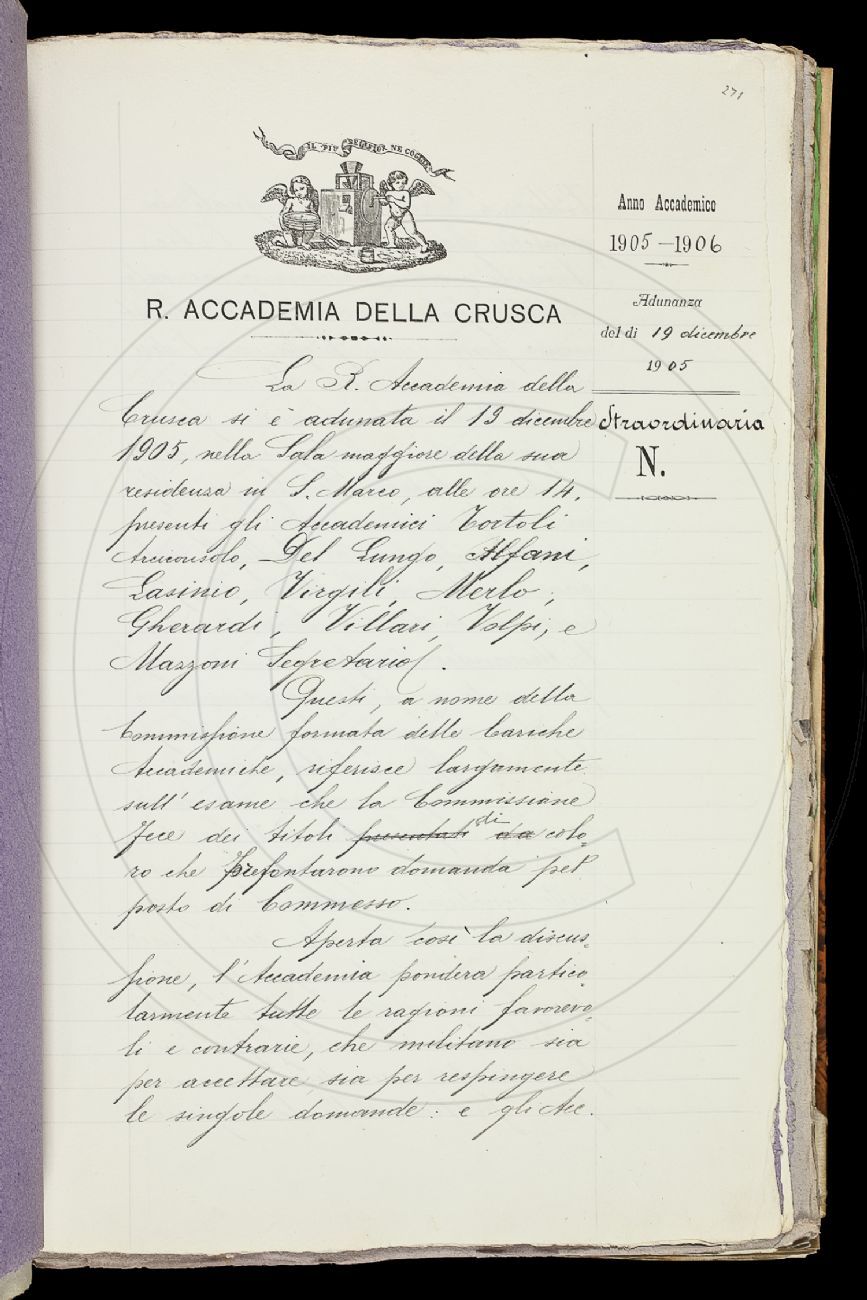 271
IL PIÙ BEL FIOR NE COGLIE
Anno Accademico
1905-1906
R. ACCADEMIA DELLA CRUSCA
Adunanza
del dì 19 dicembre
1905
Straordinaria
N.
La R. Accademia della
Crusca si è adunata il 19 dicembre
1905, nella Sala maggiore della sua
residenza in S. Marco, alle ore 14,
presenti gli Accademici Tortoli
Arciconsolo, Del Lungo, Alfani,
Lasinio, Virgili, Merlo,
Gherardi, Villari, Volpi, e
Mazzoni Segretario.
Questi, a nome della
Commissione formata delle Cariche
Accademiche, riferisce largamente
sull' esame che la Commissione
fece dei titoli presentati da di colo-
ro che presentarono domanda pel
posto di Commesso.
Aperta così la discus-
sione, l'Accademia pondera partico-
larmente tutte le ragioni favorevo-
li e contrarie, che militano sia
per accettare sia per respingere
le singole domande: e gli Acc.